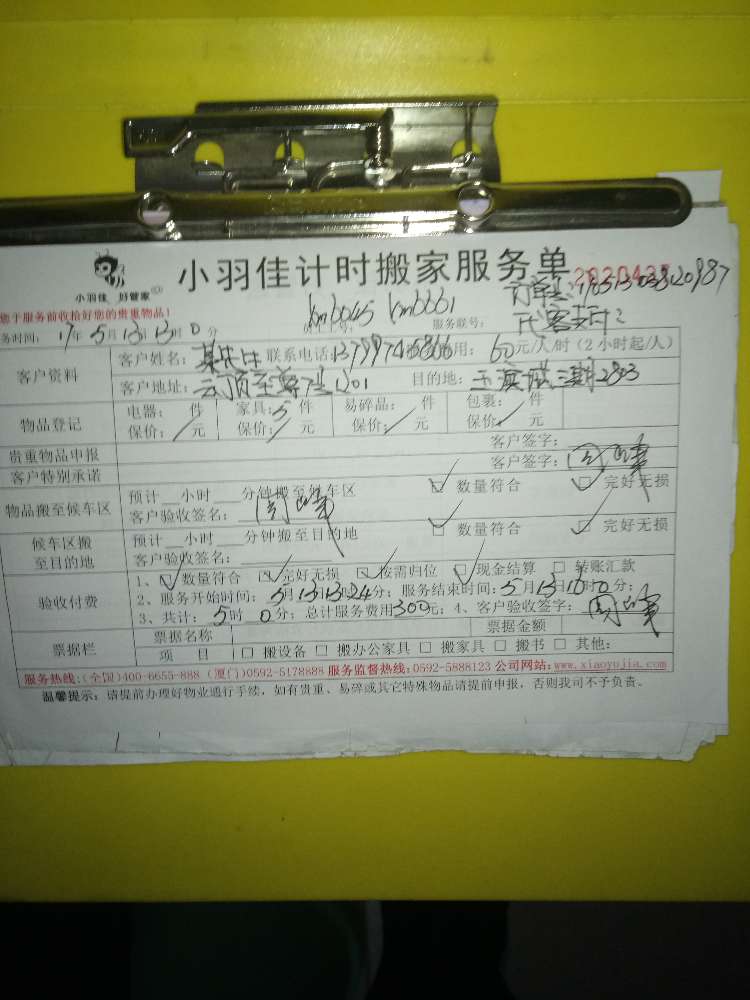 小羽佳 好管家
小羽佳计时搬家服务单
您于服务前收拾好您的贵重物品！
订单号：
代客支付：
服务联号：
务时间：17年5月13日13时0分
客户资料
客户姓名： 联系电话： 费用：60元/人/时（2小时起/人）
客户地址： 目的地：
物品登记
电器： 件 家具：5件 易碎品： 件 包裹： 件
保价： 元 保价： 元 保价： 元 保价： 元
贵重物品申报 客户签字：
客户特别承诺 客户签字：
物品搬至候车区
预计__小时__分钟搬至候车区 数量符合 完好无损
客户验收签名：
候车区搬
至目的地
预计__小时__分钟搬至目的地 数量符合 完好无损
客户验收签名：
验收付费
1、数量符合 完好无损 按需归位 现金结算 转账汇款
2、服务开始时间：5月13日13时24分；服务结束时间：5月13日 时0分；
3、共计：5时0分；总计服务费用300元；4、客户验收签字：
票据栏
票据名称 票据金额
项 目 搬设备 搬办公家具 搬家具 搬书 其他：
服务热线：(全国)400-6655-888 (厦门)0592-5178888 服务监督热线：0592-5888123 公司网站：www.xiaoyujia.com
温馨提示：请提前办理好物业通行手续，如有贵重、易碎或其它特殊物品请提前申报，否则我司不予负责。